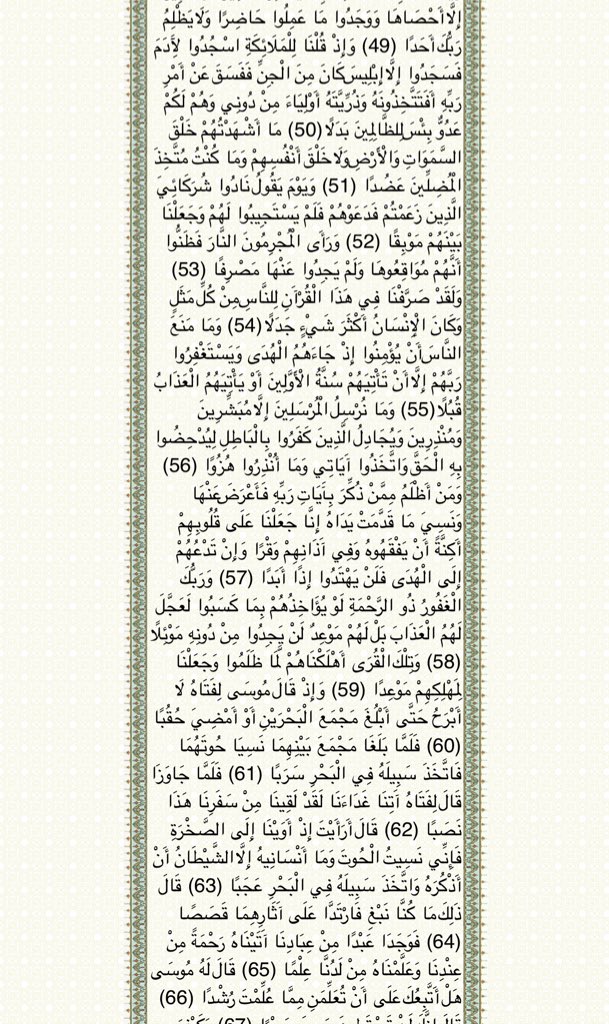 إِلَّا أَحْصَاهَا وَوَجَدُوا مَا عَمِلُوا حَاضِرًا وَلَا يَظْلِمُ
رَبُّكَ أَحَدًا (49) وَإِذْ قُلْنَا لِلْمَلَائِكَةِ اسْجُدُوا لِآَدَمَ
فَسَجَدُوا إِلَّا إِبْلِيسَ كَانَ مِنَ الْجِنِّ فَفَسَقَ عَنْ أَمْرِ
رَبِّهِ أَفَتَتَّخِذُونَهُ وَذُرِّيَّتَهُ أَوْلِيَاءَ مِنْ دُونِي وَهُمْ لَكُمْ
عَدُوٌّ بِئْسَ لِلظَّالِمِينَ بَدَلًا (50) مَا أَشْهَدْتُهُمْ خَلْقَ
السَّمَوَاتِ وَالْأَرْضِ وَلَا خَلْقَ أَنْفُسِهِمْ وَمَا كُنْتُ مُتَّخِذَ
الْمُضِلِّينَ عَضُدًا (51) وَيَوْمَ يَقُولُ نَادُوا شُرَكَائِيَ
الَّذِينَ زَعَمْتُمْ فَدَعَوْهُمْ فَلَمْ يَسْتَجِيبُوا لَهُمْ وَجَعَلْنَا
بَيْنَهُمْ مَوْبِقًا (52) وَرَأَى الْمُجْرِمُونَ النَّارَ فَظَنُّوا
أَنَّهُمْ مُوَاقِعُوهَا وَلَمْ يَجِدُوا عَنْهَا مَصْرِفًا (53)
وَلَقَدْ صَرَّفْنَا فِي هَذَا الْقُرْآَنِ لِلنَّاسِ مِنْ كُلِّ مَثَلٍ
وَكَانَ الْإِنْسَانُ أَكْثَرَ شَيْءٍ جَدَلًا (54) وَمَا مَنَعَ
النَّاسَ أَنْ يُؤْمِنُوا إِذْ جَاءَهُمُ الْهُدَى وَيَسْتَغْفِرُوا
رَبَّهُمْ إِلَّا أَنْ تَأْتِيَهُمْ سُنَّةُ الْأَوَّلِينَ أَوْ يَأْتِيَهُمُ الْعَذَابُ
قُبُلًا (55) وَمَا نُرْسِلُ الْمُرْسَلِينَ إِلَّا مُبَشِّرِينَ
وَمُنْذِرِينَ وَيُجَادِلُ الَّذِينَ كَفَرُوا بِالْبَاطِلِ لِيُدْحِضُوا
بِهِ الْحَقَّ وَاتَّخَذُوا آَيَاتِي وَمَا أُنْذِرُوا هُزُوًا (56)
وَمَنْ أَظْلَمُ مِمَّنْ ذُكِّرَ بِآَيَاتِ رَبِّهِ فَأَعْرَضَ عَنْهَا
وَنَسِيَ مَا قَدَّمَتْ يَدَاهُ إِنَّا جَعَلْنَا عَلَى قُلُوبِهِمْ
أَكِنَّةً أَنْ يَفْقَهُوهُ وَفِي آَذَانِهِمْ وَقْرًا وَإِنْ تَدْعُهُمْ
إِلَى الْهُدَى فَلَنْ يَهْتَدُوا إِذًا أَبَدًا (57) وَرَبُّكَ
الْغَفُورُ ذُو الرَّحْمَةِ لَوْ يُؤَاخِذُهُمْ بِمَا كَسَبُوا لَعَجَّلَ
لَهُمُ الْعَذَابَ بَلْ لَهُمْ مَوْعِدٌ لَنْ يَجِدُوا مِنْ دُونِهِ مَوْئِلًا
(58) وَتِلْكَ الْقُرَى أَهْلَكْنَاهُمْ لَمَّا ظَلَمُوا وَجَعَلْنَا
لِمَهْلِكِهِمْ مَوْعِدًا (59) وَإِذْ قَالَ مُوسَى لِفَتَاهُ لَا
أَبْرَحُ حَتَّى أَبْلُغَ مَجْمَعَ الْبَحْرَيْنِ أَوْ أَمْضِيَ حُقُبًا
(60) فَلَمَّا بَلَغَا مَجْمَعَ بَيْنِهِمَا نَسِيَا حُوتَهُمَا
فَاتَّخَذَ سَبِيلَهُ فِي الْبَحْرِ سَرَبًا (61) فَلَمَّا جَاوَزَا
قَالَ لِفَتَاهُ آَتِنَا غَدَاءَنَا لَقَدْ لَقِينَا مِنْ سَفَرِنَا هَذَا
نَصَبًا (62) قَالَ أَرَأَيْتَ إِذْ أَوَيْنَا إِلَى الصَّخْرَةِ
فَإِنِّي نَسِيتُ الْحُوتَ وَمَا أَنْسَانِيهُ إِلَّا الشَّيْطَانُ أَنْ
أَذْكُرَهُ وَاتَّخَذَ سَبِيلَهُ فِي الْبَحْرِ عَجَبًا (63) قَالَ
ذَلِكَ مَا كُنَّا نَبْغِ فَارْتَدَّا عَلَى آَثَارِهِمَا قَصَصًا
(64) فَوَجَدَا عَبْدًا مِنْ عِبَادِنَا آَتَيْنَاهُ رَحْمَةً مِنْ
عِنْدِنَا وَعَلَّمْنَاهُ مِنْ لَدُنَّا عِلْمًا (65) قَالَ لَهُ مُوسَى
هَلْ أَتَّبِعُكَ عَلَى أَنْ تُعَلِّمَنِ مِمَّا عُلِّمْتَ رُشْدًا (66)